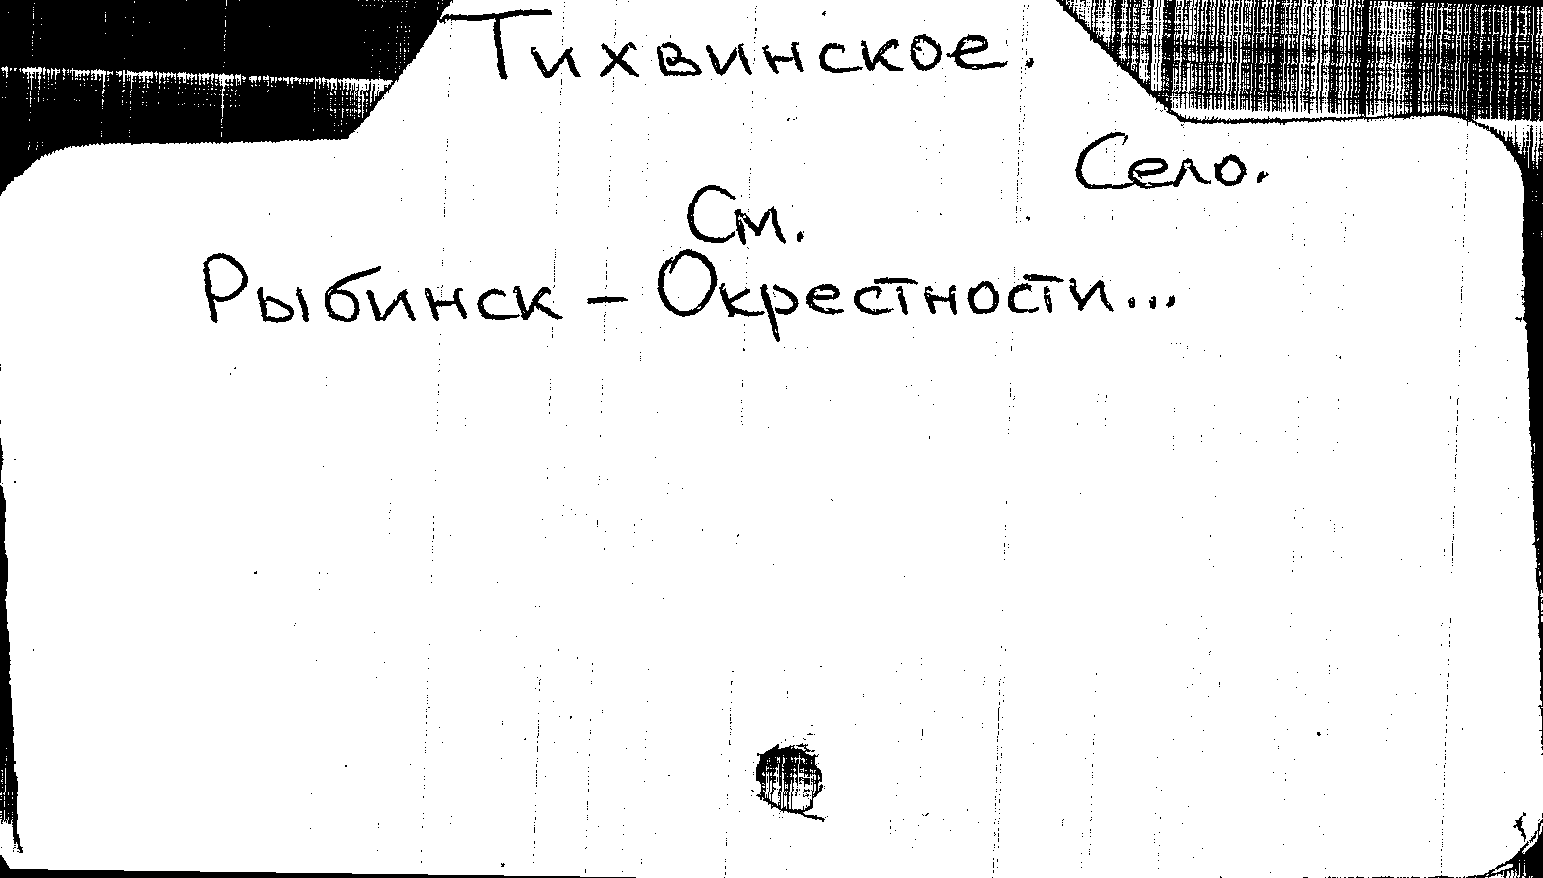 Тихвинское.
Село.
См.
Рыбинск – Окрестности...